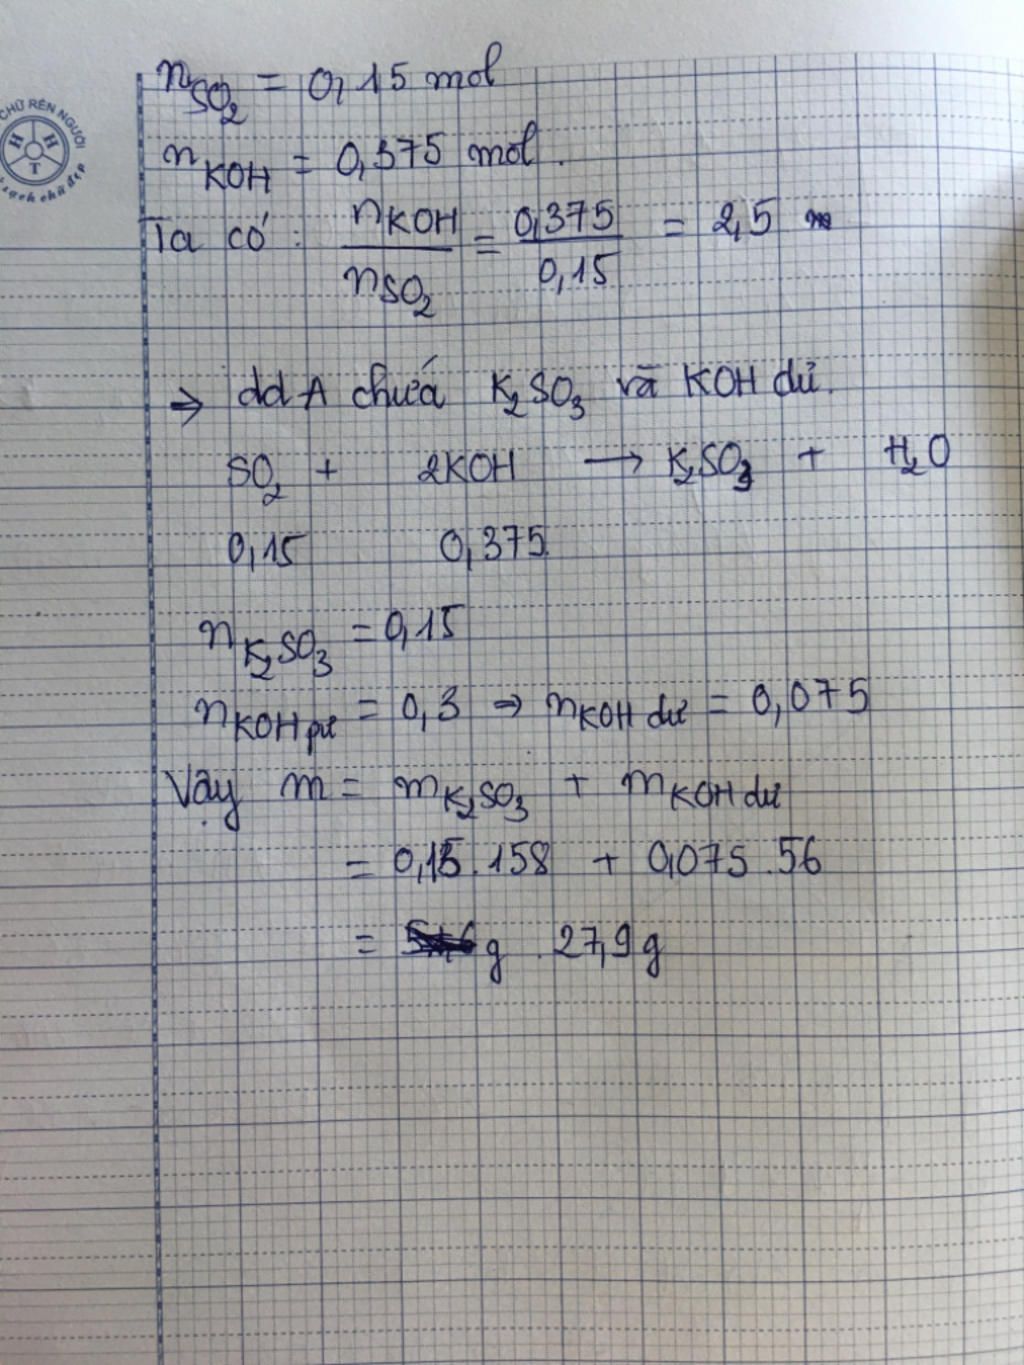 CHỮ RÈN NGƯỜI
H H T
sạch chữ đẹp
nSO2 = 0,15 mol
nKOH = 0,375 mol.
Ta có: nKOH / nSO2 = 0,375 / 0,15 = 2,5
⇒ dd A chứa K2SO3 và KOH dư.
SO2 + 2KOH → K2SO3 + H2O
0,15 0,375
nK2SO3 = 0,15
nKOH pư = 0,3 ⇒ nKOH dư = 0,075
Vậy m = mK2SO3 + mKOH dư
= 0,15.158 + 0,075.56
= g. 27,9g